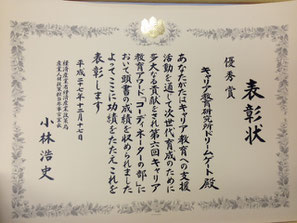 表彰状
優秀賞
キャリア教育研究所ドリームゲート殿
あなたがたはキャリア教育への支援
活動を通じて次世代育成のために
多大なる貢献をされ第六回キャリア
教育アワードコーディネーターの部に
おいて頭書の成績を収められました
よってここに功績をたたえこれを
表彰します
平成二十七年十二月十七日
経済産業省経済産業政策局
小林浩史